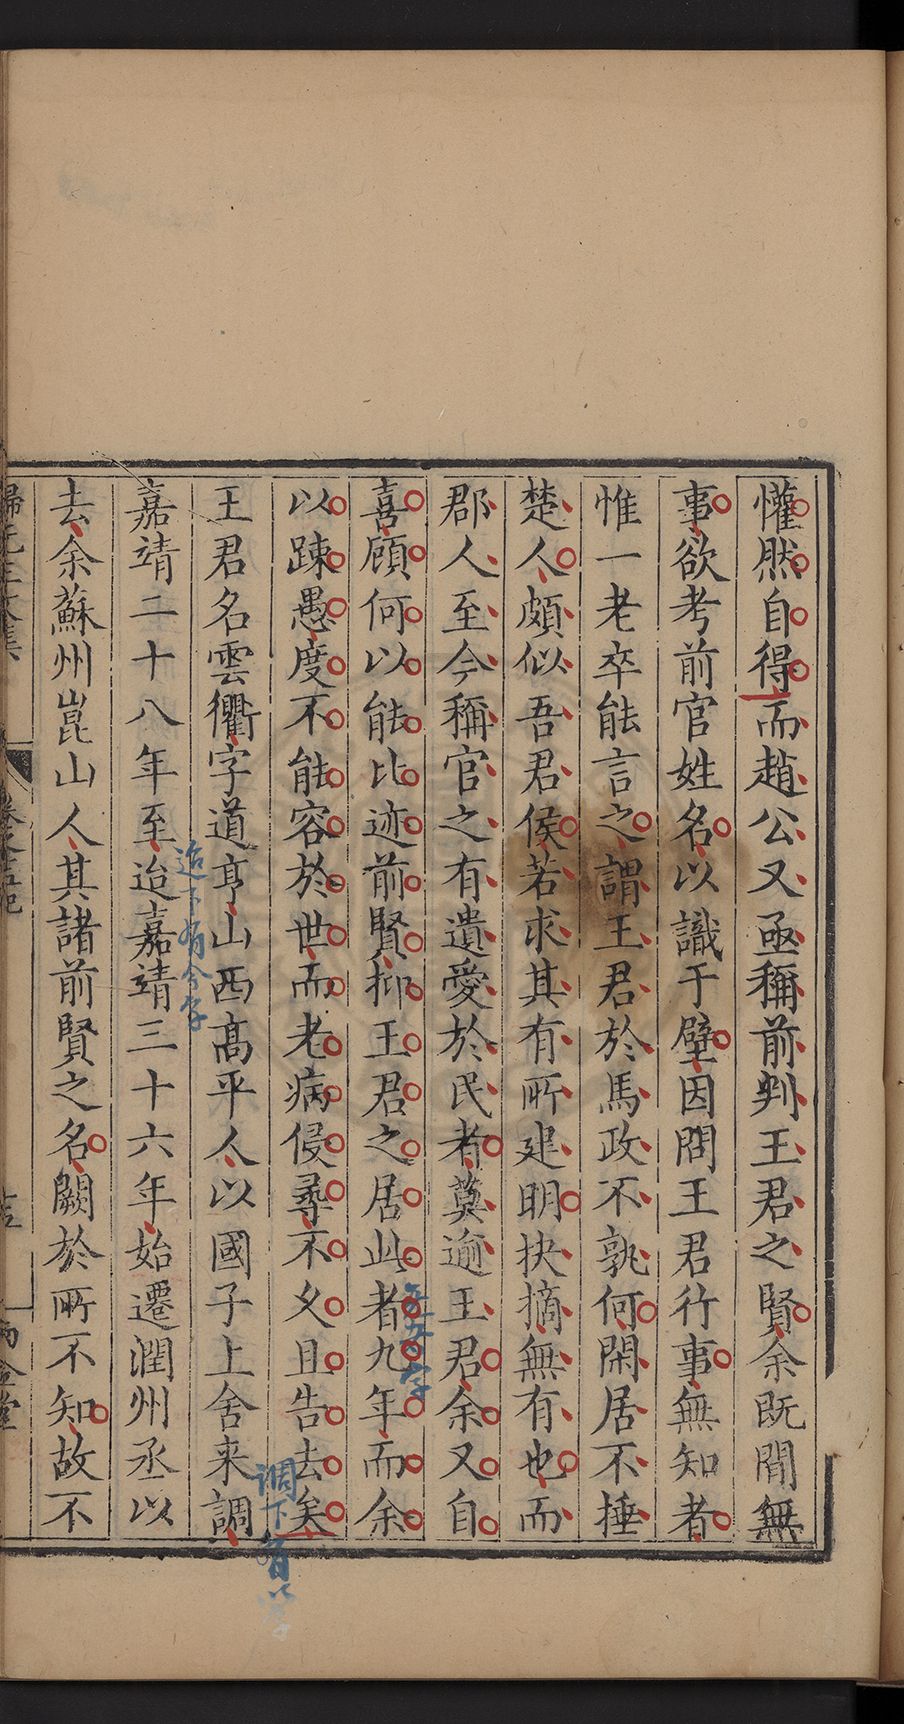 懽然自得而趙公又亟稱前判王君之賢余既閒無
事欲考前官姓名以識于壁因問王君行事無知者
惟一老卒能言之謂王君於馬政不孰何閑居不捶
楚人頗似吾君侯若求其有所建明抉摘無有也而
郡人至今稱官之有遺愛於民者莫逾王君余又自
喜顧何以能比迹前賢抑王君之居此者九年而余
以踈愚度不能容於世而老病侵尋不久且告去矣
王君名雲衢字道亨山西高平人以國子上舍来調
嘉靖二十八年至迨嘉靖三十六年始遷潤州丞以
去余蘇州崑山人其諸前賢之名闕於所不知故不
調下有以字
迨下有今字
卷之十五記